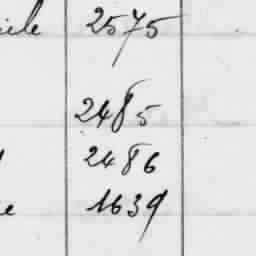 2575
2485
2486
1639